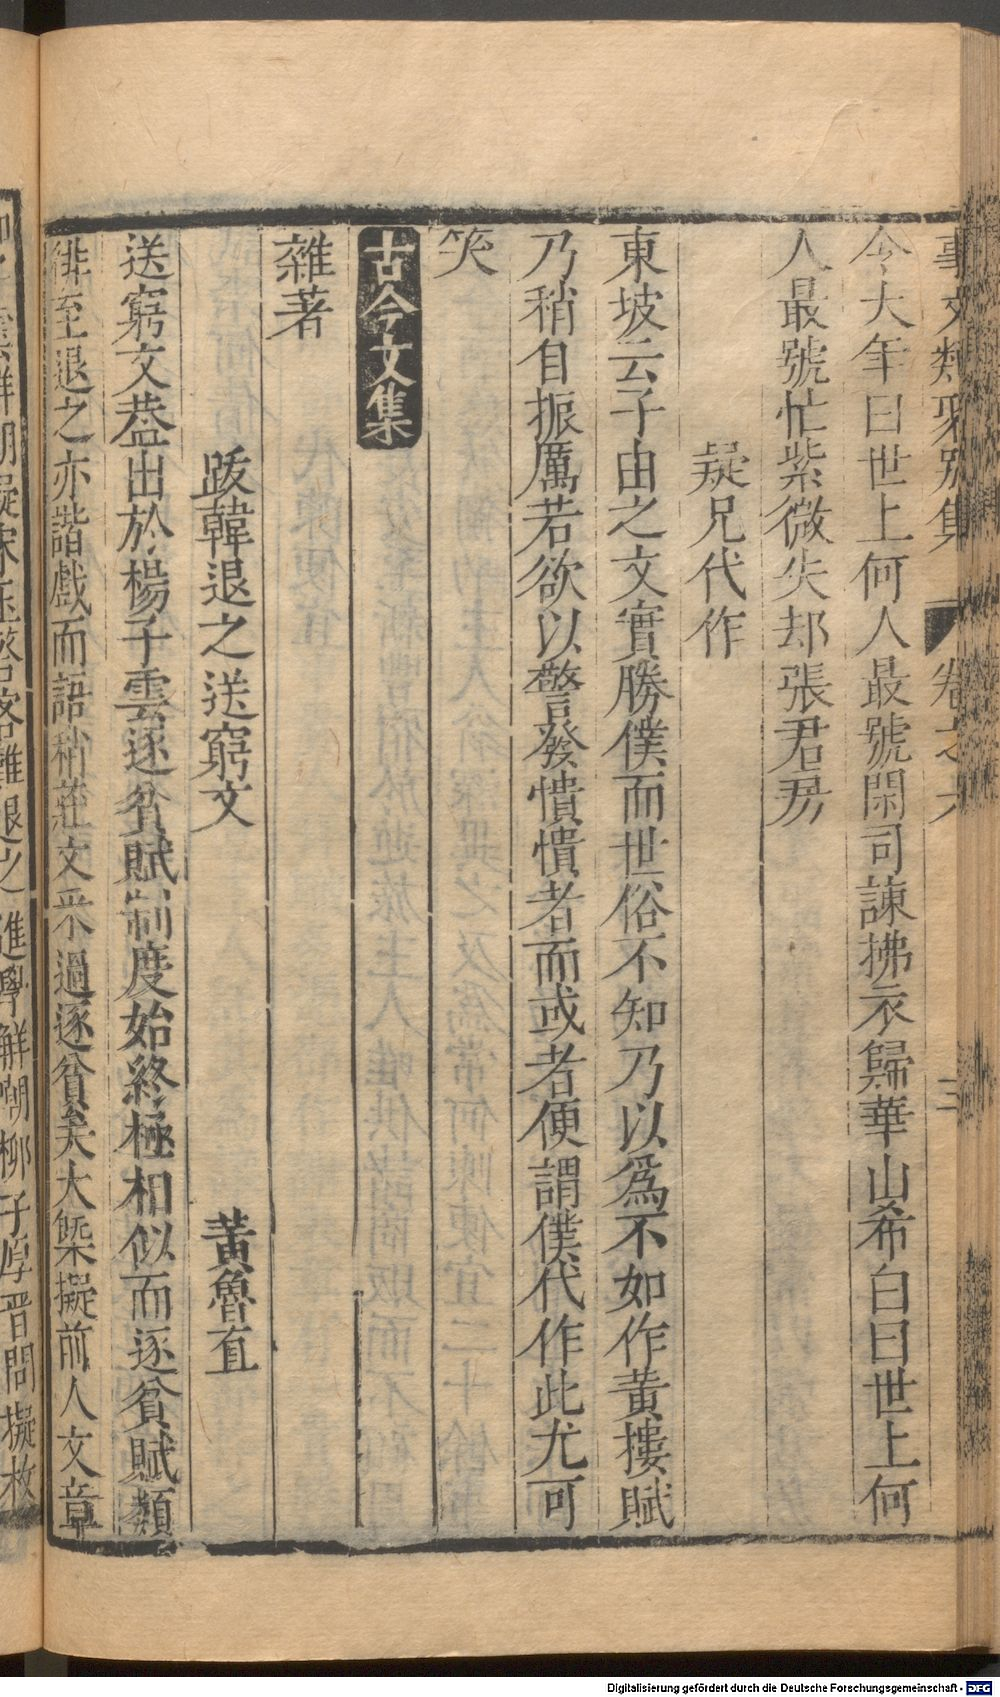 事文類聚別集 卷之六 三
今大年曰世上何人最號閑司諫拂衣歸華山希白曰世上何
人最號忙紫微失却張君房
疑兄代作
東坡云子由之文實勝僕而世俗不知乃以爲不如作黃摟賦
乃稍自振厲若欲以警發憒憒者而或者便謂僕代作此尤可
笑
古今文集
雜著
跋韓退之送窮文 黃魯直
送窮文葢出於楊子雲逐貧賦制度始終極相似而逐貧賦類
俳至退之亦諧戲而語稍莊文采過逐貧矣大槩擬前人文章
解嘲擬宋玉荅客難退之進學解嘲柳子厚晋問擬枚
Digitalisierung gefördert durch die Deutsche Forschungsgemeinschaft - DFG